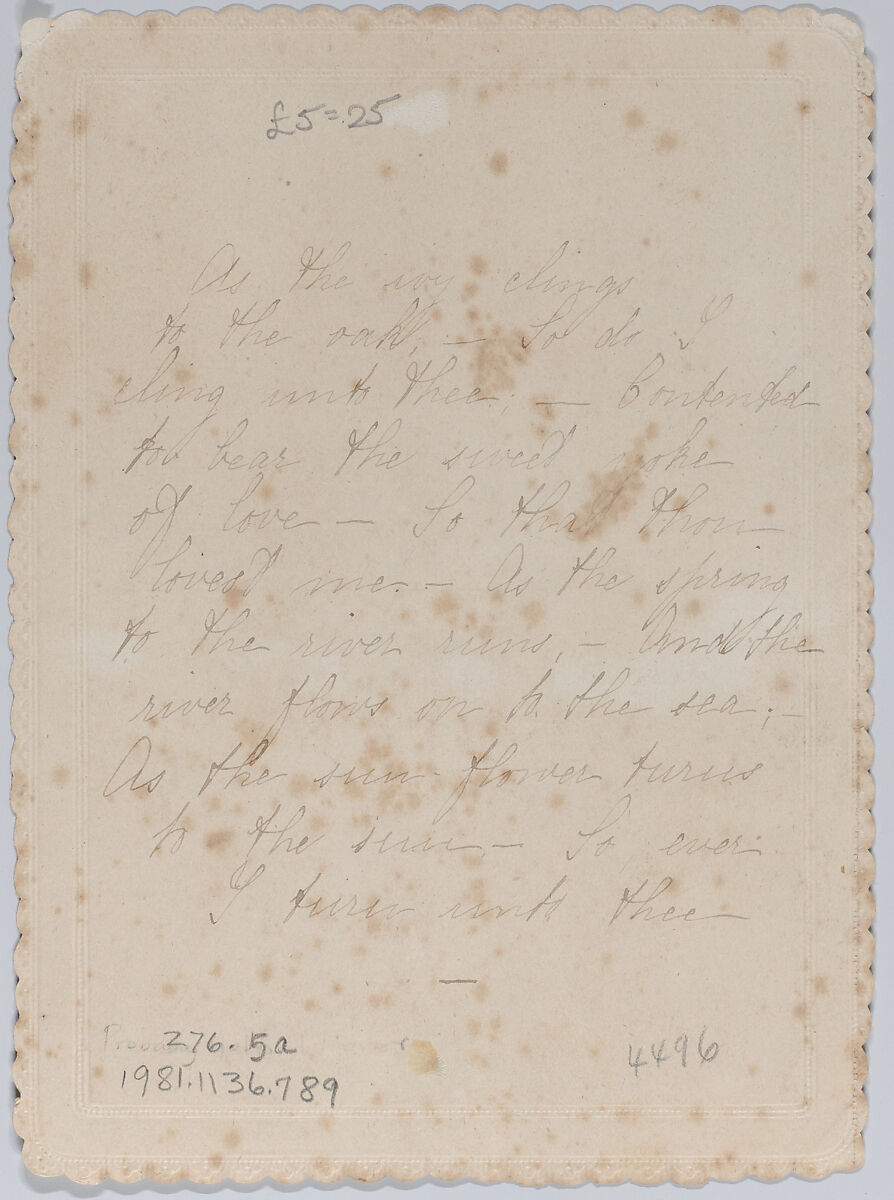 £5=25
As the ivy clings
to the oak, – So do I
cling unto thee; – Contented
to bear the sweet yoke
of love – So that thou
lovest me. – As the spring
to the river runs, – And the
river flows on to the sea; –
As the sun-flower turns
to the sun – So ever
I turn unto thee
—
276.5a
1981.1136.789
4496